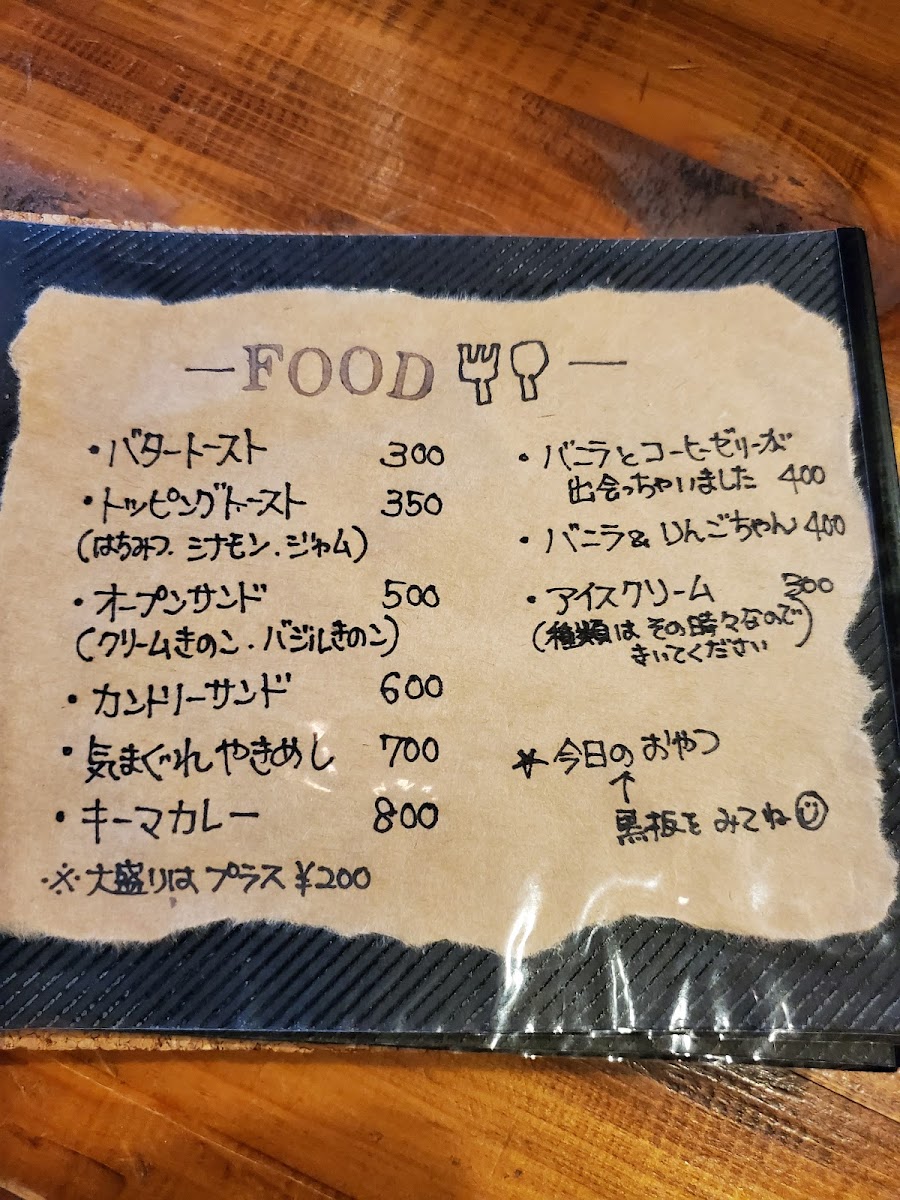 —FOOD—
・バタートースト 300
・トッピングトースト 350
(はちみつ.シナモン.ジャム)
・オープンサンド 500
(クリームきのこ.バジルきのこ)
・カンドリーサンド 600
・気まぐれやきめし 700
・キーマカレー 800
※大盛りはプラス¥200
・バニラとコーヒーゼリーが
出会っちゃいました 400
・バニラ&りんごちゃん 400
・アイスクリーム 300
(種類はその時々なので
きいてください)
*今日のおやつ
↑
黒板をみてね☺